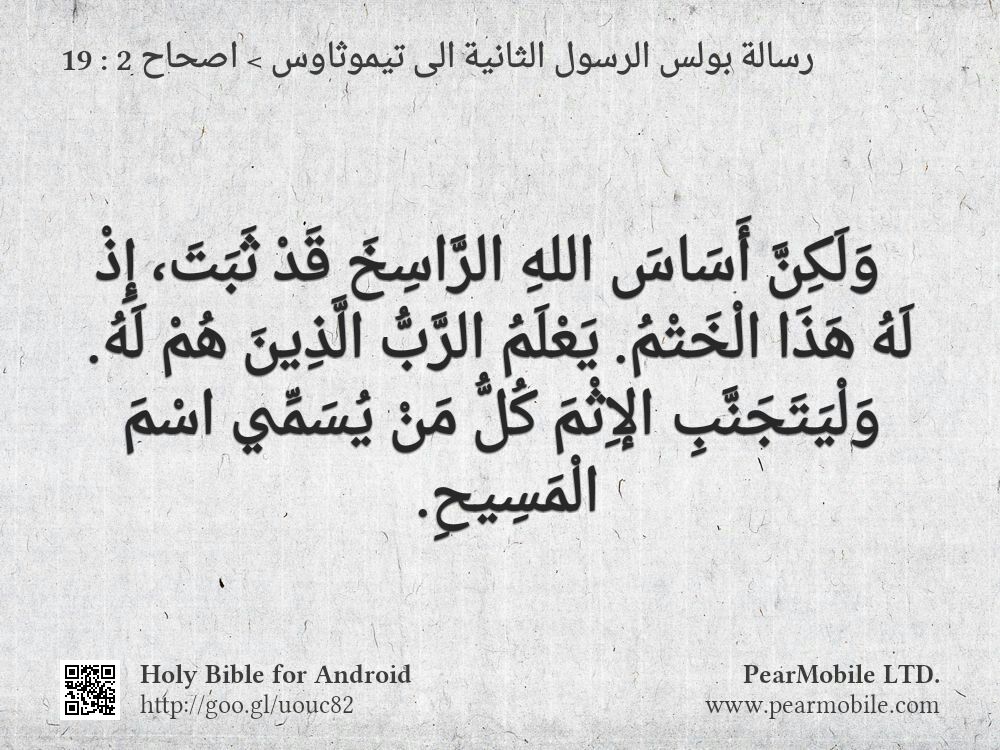 رسالة بولس الرسول الثانية الى تيموثاوس > اصحاح 2 : 19
وَلَكِنَّ أَسَاسَ اللهِ الرَّاسِخَ قَدْ ثَبَتَ، إِذْ
لَهُ هَذَا الْخَتْمُ. يَعْلَمُ الرَّبُّ الَّذِينَ هُمْ لَهُ.
وَلْيَتَجَنَّبِ الإِثْمَ كُلُّ مَنْ يُسَمِّي اسْمَ
الْمَسِيحِ.
Holy Bible for Android
http://goo.gl/uouc82
PearMobile LTD.
www.pearmobile.com